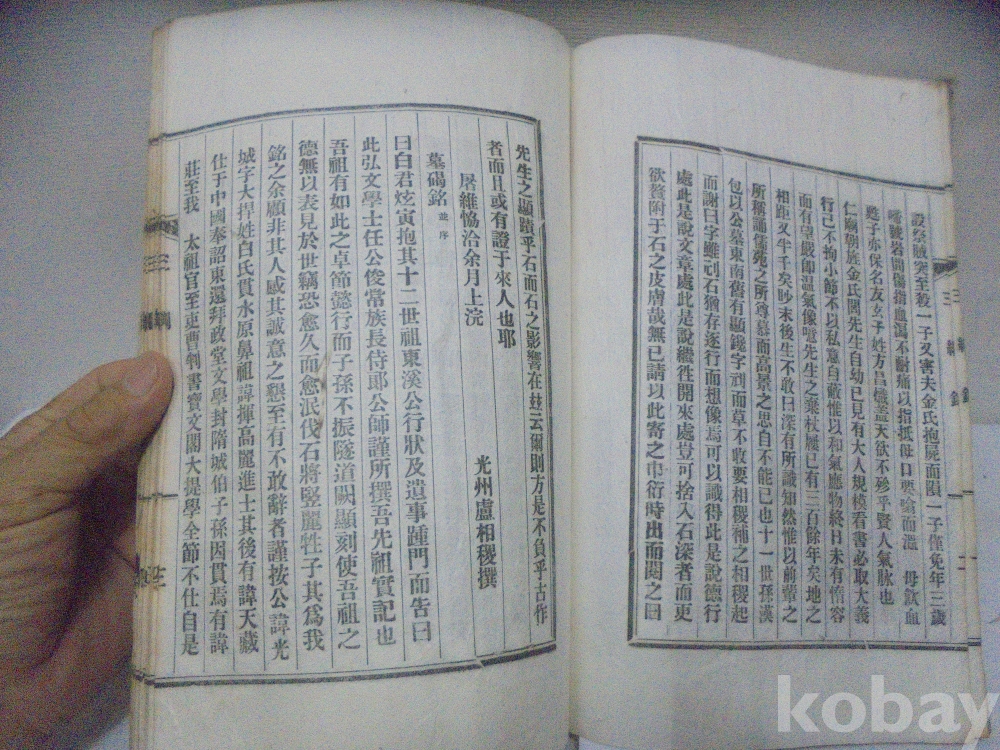 設祭賊突至殺一子又害夫金氏抱屍而隕一子僅免年三歲
嚙號岩間傷指血瀉不耐痛以指抵母口要喻而溫 母飮血
甦子亦保名友玄子姓方昌熾蓋天欲不殄乎賢人氣脉也
仁廟朝族金氏閭先生自幼已見有大人規模看書必取大義
行己不拘小節不以私意自蔽惟以和氣應物終日未有惰容
而有望嚴卽溫氣像噫先生之棄杖屨已有三百餘年矣地之
相距又半千矣眇末後生不敢曰深有所識知然惟以前輩之
所稱誦儒苑之所尊慕而高景之思自不能已也十一世孫漢
包以公墓東南舊有顯鐫字刓而草不收要相稷補之相稷起
而謝曰字雖刓石猶存逐行而想像焉可以識得此是說德行
處此是說文章處此是說繼徃開來處豈可捨入石深者而更
欲贅附于石之皮膚哉無已請以此寄之巾衍時出而閱之曰
先生之顯蹟乎石而石之影響在玆云爾則方是不負乎古作
者而且或有證于來人也耶
屠維協洽余月上浣 光州盧相稷撰
墓碣銘 並序
日白君炫寅抱其十二世祖東溪公行狀及遺事踵門而告曰
此弘文學士任公俊常族長侍郞公師謹所撰吾先祖實記也
吾祖有如此之卓節懿行而子孫不振隧道闕顯刻使吾祖之
德無以表見於世竊恐愈久而愈泯伐石將竪麗牲子其爲我
銘之余顧非其人感其誠意之懇至有不敢辭者謹按公諱光
城字大捍姓白氏貫水原鼻祖諱揮高麗進士其後有諱天藏
仕于中國奉詔東還拜政堂文學封隋城伯子孫因貫焉有諱
莊至我 太祖官至吏曹判書寶文閣大提學全節不仕自是